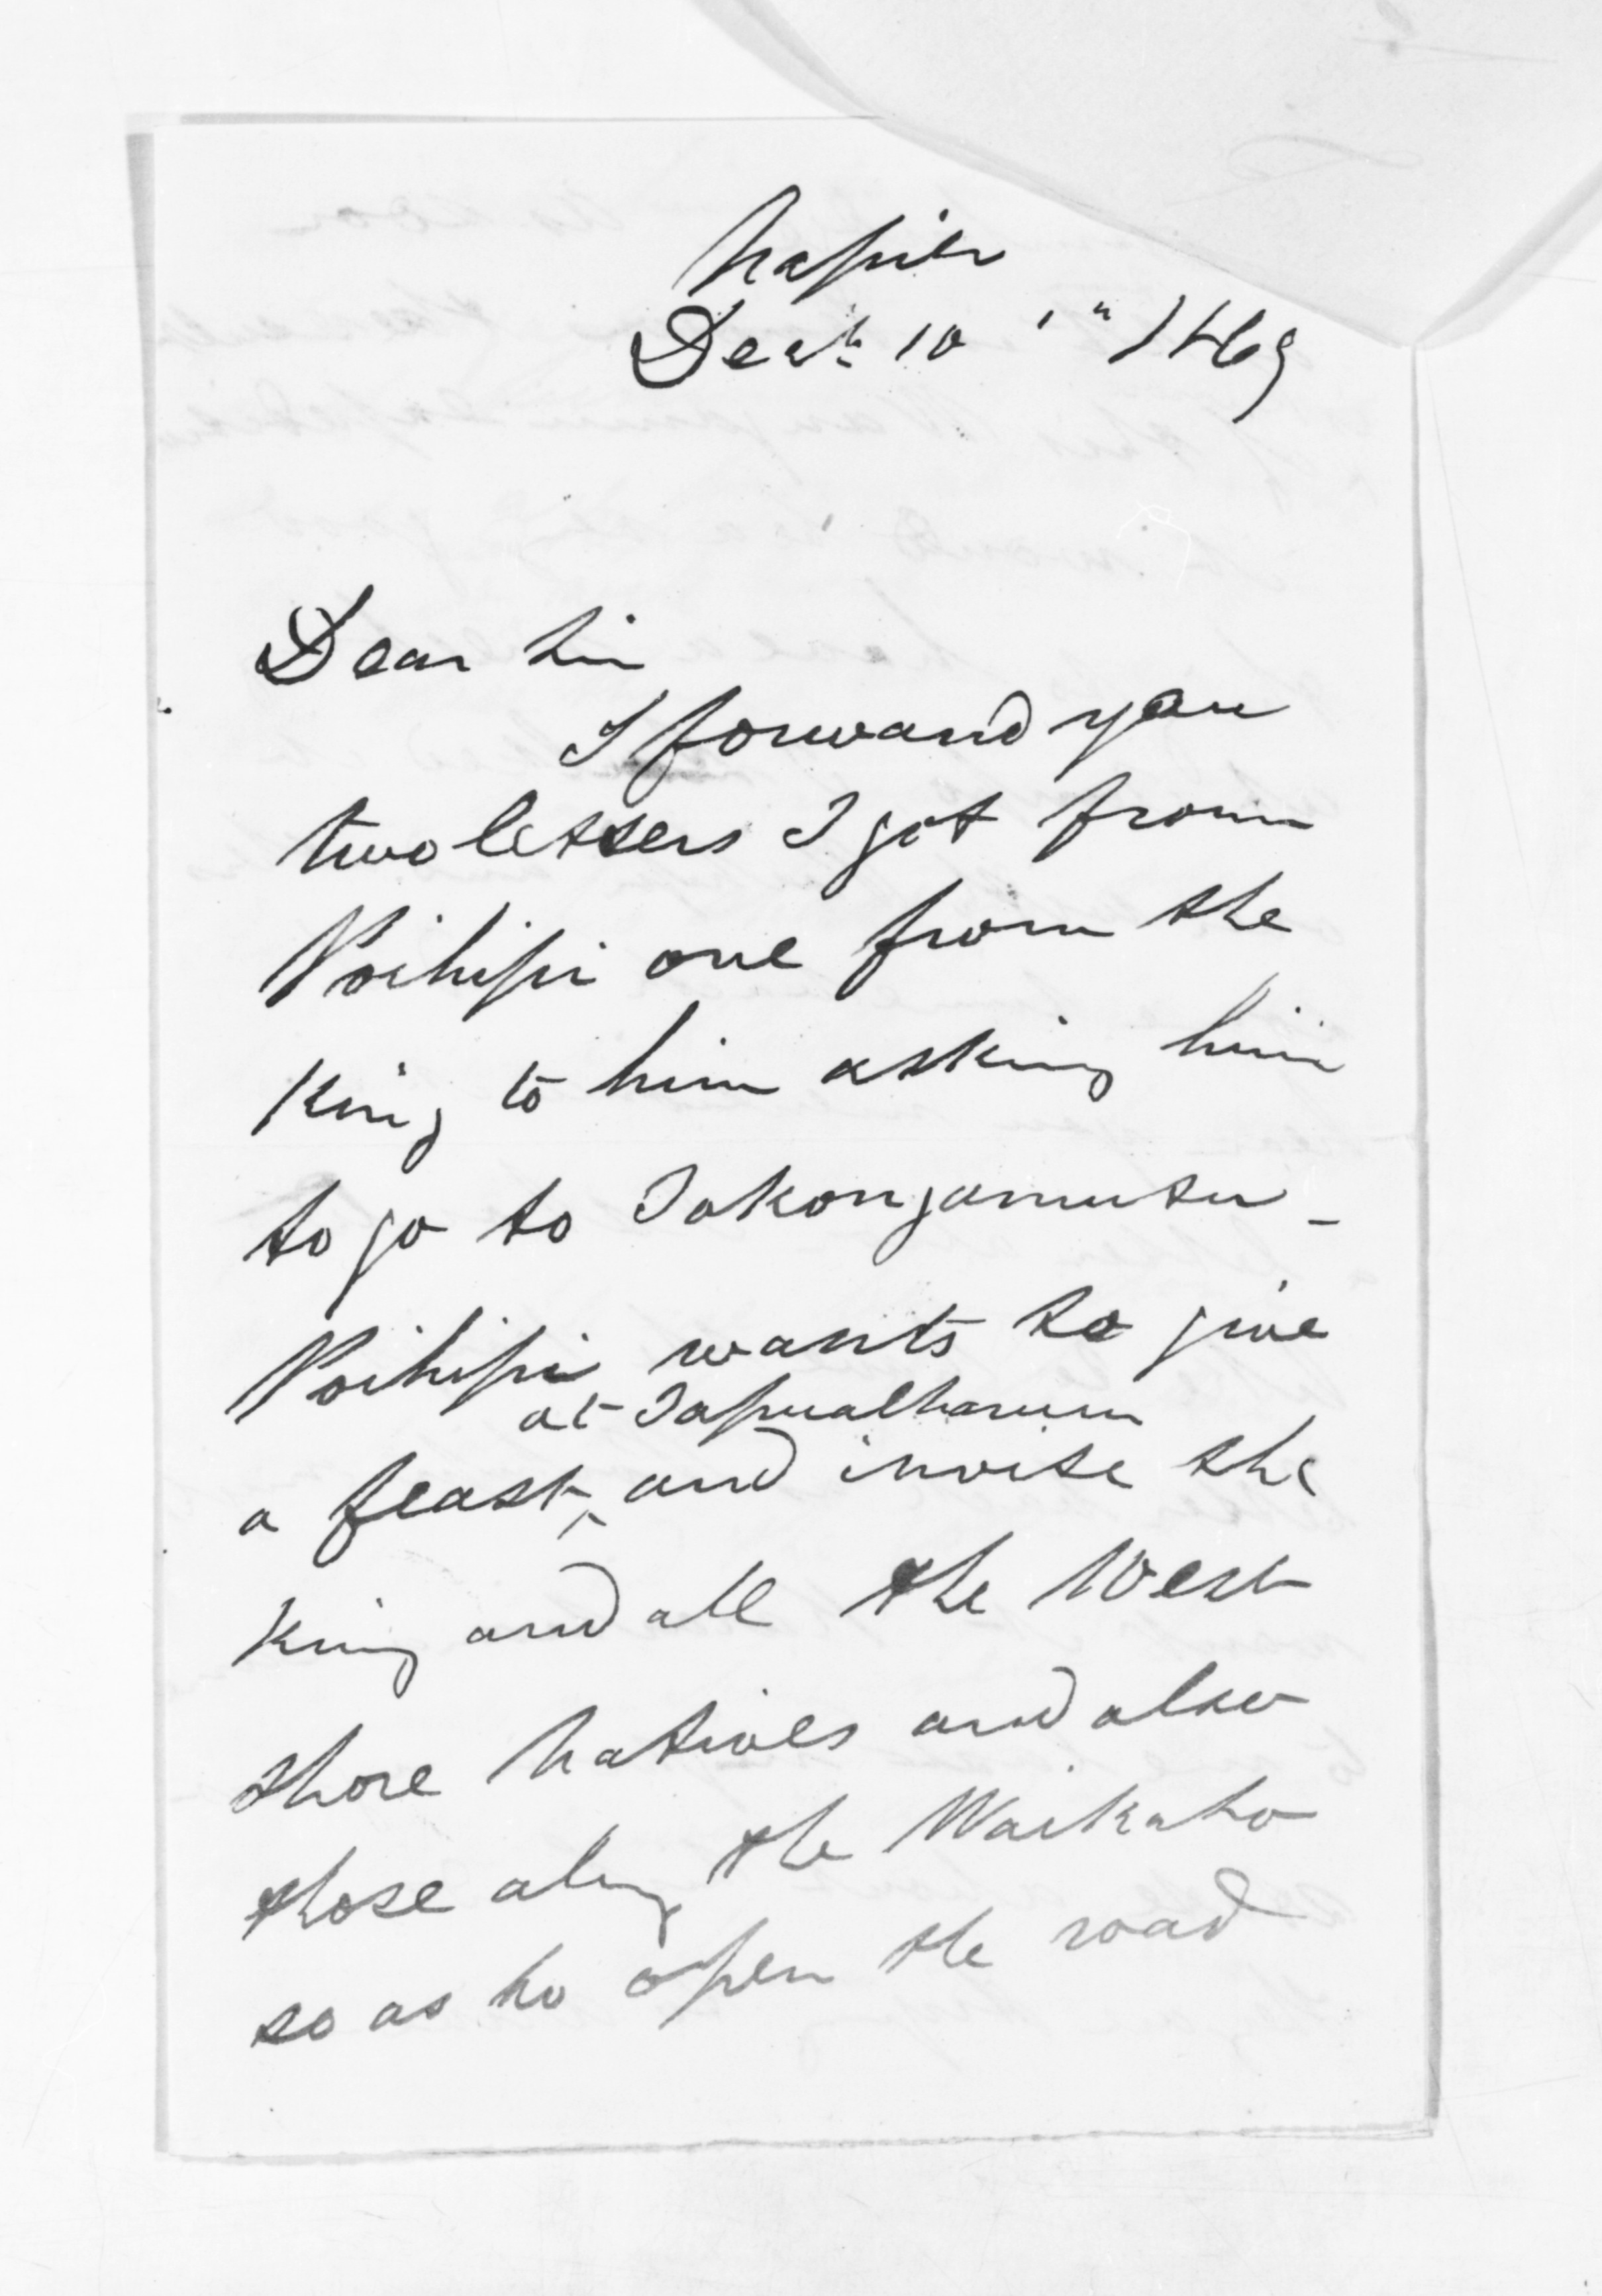 Napier
Decr. 10th 1869
Dear Sir
I forward you
two letters I got from
Poihipi one from the
King to him asking him
to go to Tokangamutu -
Poihipi wants to give
at Tapuaeharuru
a feast ^ and invite the
King and all the West
shore Natives and also
those along the Waikato
so as to open the road